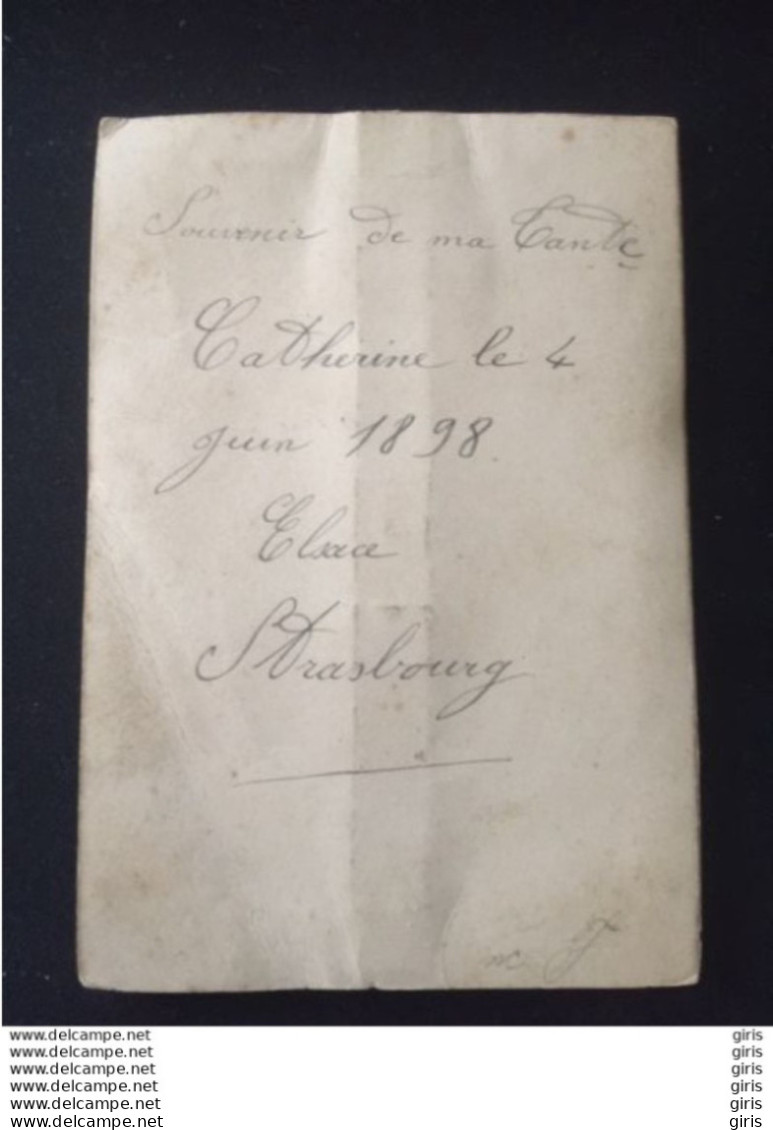 Souvenir de ma Tante
Catherine le 4
juin 1898
Elsace
Strasbourg
www.delcampe.net giris
www.delcampe.net giris
www.delcampe.net giris
www.delcampe.net giris
www.delcampe.net giris
www.delcampe.net giris